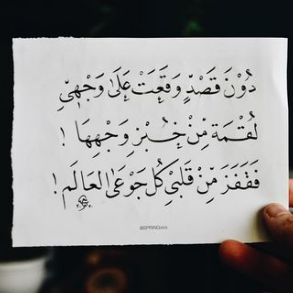 دُوْنَ قَصْدٍ وَقَعَتْ عَلَىٰ وَجْهِيْ
لُقْمَة مِّنْ خُبْزِ وَجْهِهَا !
فَقَفَزَ مِّنْ قَلْبِيْ كُل جَوْعَىٰ العَالَم !